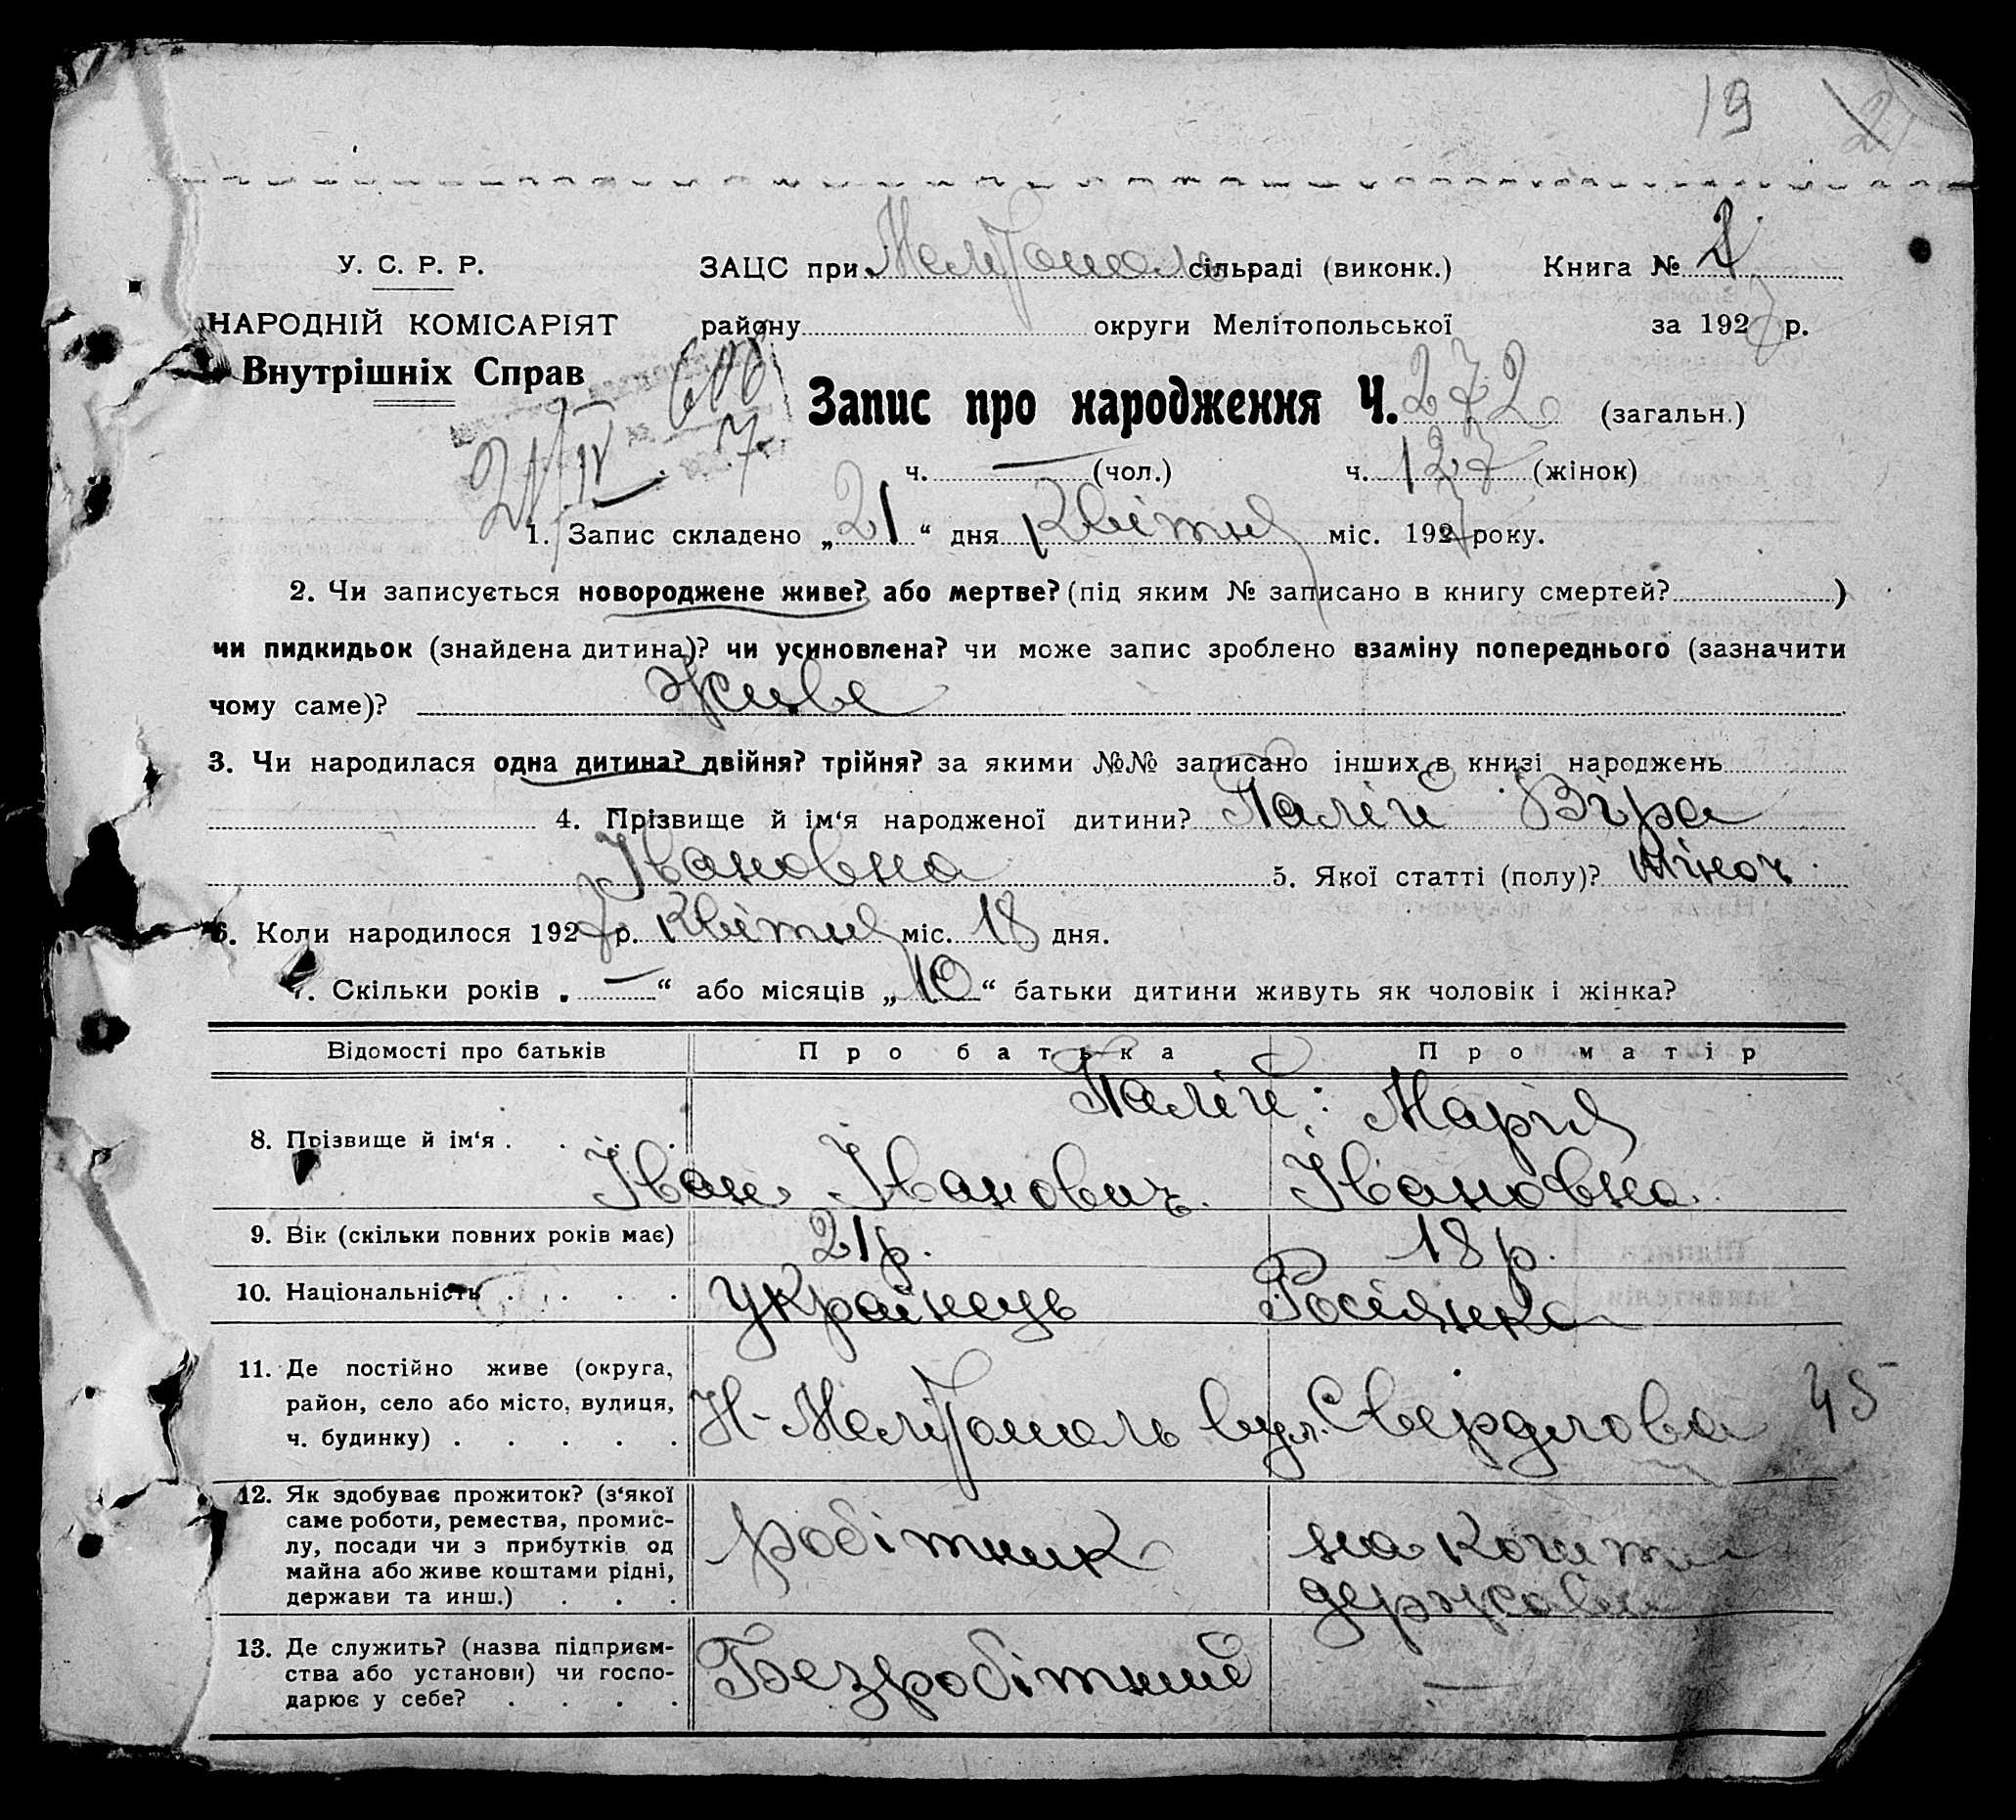 19 2
У. С. Р. Р. ЗАЦС при Мелітополь сільраді (виконк.) Книга №
НАРОДНІЙ КОМІСАРІЯТ району округи Мелітопольської за 1927 р.
Внутрішніх Справ
Запис про народження Ч. 272 (загальн.)
21/IV 7
ч. — (чол.) ч. 127 (жінок)
1. Запис складено „21“ дня Квітня міс. 1927 року.
2. Чи записується новороджене живе? або мертве? (під яким № записано в книгу смертей? )
чи пидкидьок (знайдена дитина)? чи усиновлена? чи може запис зроблено взаміну попереднього (зазначити
чому саме)? Живе
3. Чи народилася одна дитина? двійня? трійня? за якими №№ записано інших в книзі народжень
4. Прізвище й ім‘я народженої дитини? Палій Віра
Івановна 5. Якої статті (полу)? жіноч.
6. Коли народилося 1927 р. Квітня міс. 18 дня.
7. Скільки років „—“ або місяців „10“ батьки дитини живуть як чоловік і жінка?
Відомості про батьків Про батька Про матір
Палій: Марія
8. Прізвище й ім‘я . . . . .
Іван Іванович. Івановна.
9. Вік (скільки повних років має) 21 р. 18 р.
10. Національність . . . . українець Росіянка
11. Де постійно живе (округа,
район, село або місто, вулиця, Н-Мелітополь вул. Свердлова 45
ч. будинку) . . . . .
12. Як здобуває прожиток? (з‘якої
саме роботи, ремества, промис-
лу, посади чи з прибутків од робітник на кошти
майна або живе коштами рідні,
держави та инш.) . . . держави
13. Де служить? (назва підприєм-
ства або установи) чи госпо- Безробітний —
дарює у себе? . . . .